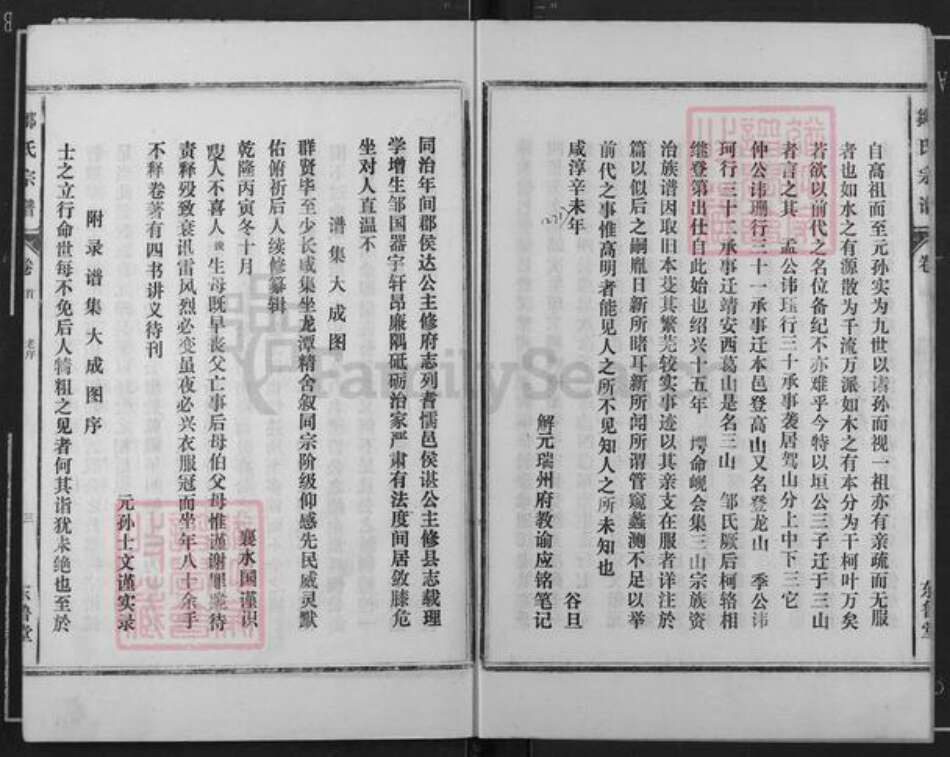 自高祖而至元孙实为九世以诸孙而视一祖亦有亲疏而无服
者也如水之有源散为千流万派如木之有本分为干柯叶万矣
若欲以前代之名位备纪不亦难乎今特以垣公三子迁于三山
者言之其 孟公讳珏行三十承事袭居驾山分上中下三它
仲公讳珊行三十一承事迁本邑登高山又名登龙山 季公讳
珂行三十二承事迁靖安西葛山是名三山 邹氏厥后柯辂相
继登第出仕自此始也绍兴十五年 愕命岘会集三山宗族资
治族谱因取旧本芟其繁芜较实事迹以其亲支在服者详注於
篇以似后之嗣胤日新所睹耳新所闻所谓管窥蠡测不足以举
前代之事惟高明者能见人之所不见知人之所未知也
咸淳辛未年 谷旦
1271
解元瑞州府教谕应铭笔记
邹氏宗谱 卷
东鲁堂
同治年间郡侯达公主修府志列耆儒邑侯谌公主修县志载理
学增生邹国器字轩昂廉隅砥砺治家严肃有法度间居敛膝危
坐对人直温不
谱集大成图
群贤毕至少长咸集坐龙潭精舍叙同宗阶级仰感先民威灵默
佑俯祈后人续修纂辑
乾隆丙寅冬十月 襄水国谨识
叟人不喜人谀生母既早丧父亡事后母伯父母惟谨谢罪譴待
责释殁致衰讯雷风烈必变虽夜必兴衣服冠而坐年八十余手
不释卷著有四书讲义待刊
元孙士文谨实录
附录谱集大成图序
士之立行命世每不免后人犄粗之见者何其诣犹未绝也至於
邹氏宗谱 卷首 老序 三 东鲁堂
FamilySearch